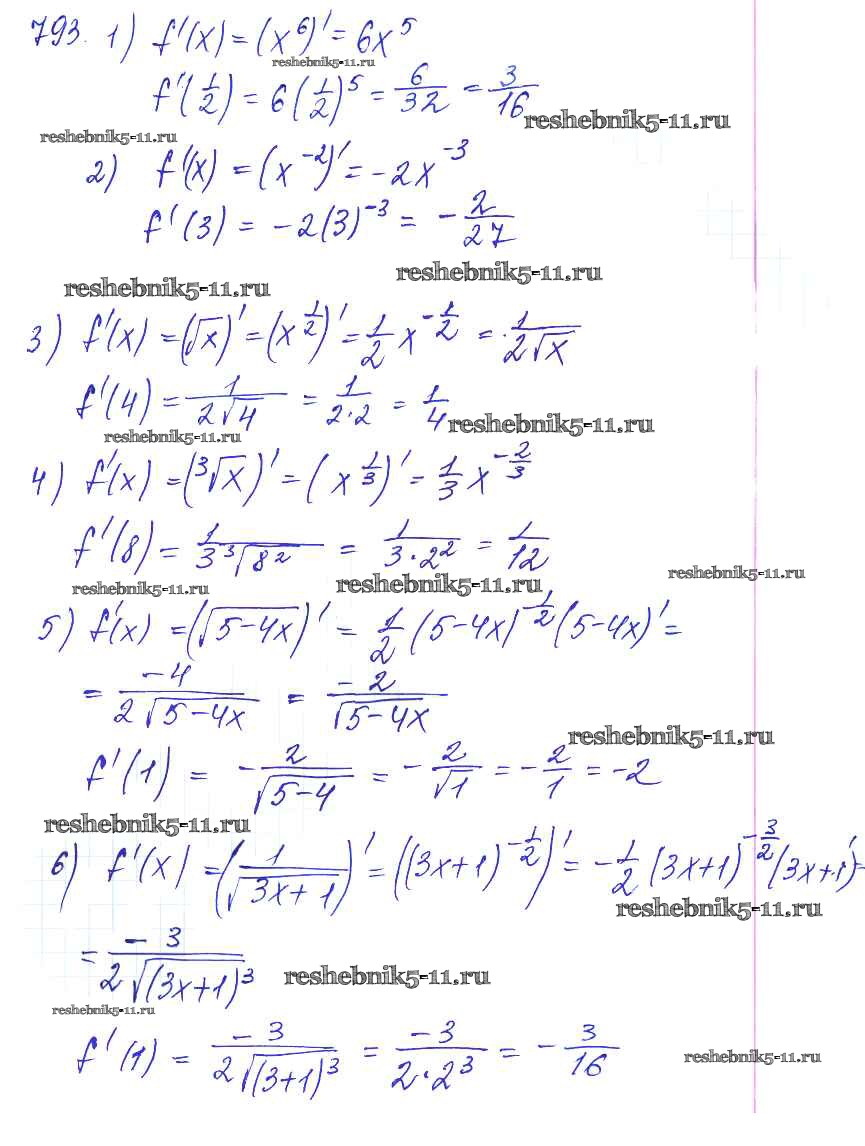 793. 1) f'(x) = (x⁶)' = 6x⁵
reshebnik5-11.ru
f'(1/2) = 6(1/2)⁵ = 6/32 = 3/16
reshebnik5-11.ru
reshebnik5-11.ru
2) f'(x) = (x⁻²)' = -2x⁻³
f'(3) = -2(3)⁻³ = -2/27
reshebnik5-11.ru
reshebnik5-11.ru
3) f'(x) = (√x)' = (x^(1/2))' = 1/2 x^(-1/2) = 1/(2√x)
f'(4) = 1/(2√4) = 1/(2·2) = 1/4
reshebnik5-11.ru
reshebnik5-11.ru
4) f'(x) = (³√x)' = (x^(1/3))' = 1/3 x^(-2/3)
f'(8) = 1/(3 ³√8²) = 1/(3·2²) = 1/12
reshebnik5-11.ru
reshebnik5-11.ru
reshebnik5-11.ru
5) f'(x) = (√(5-4x))' = 1/2 (5-4x)^(-1/2) (5-4x)' =
= -4/(2√(5-4x)) = -2/√(5-4x)
reshebnik5-11.ru
f'(1) = -2/√(5-4) = -2/√1 = -2/1 = -2
reshebnik5-11.ru
6) f'(x) = (1/√(3x+1))' = ((3x+1)^(-1/2))' = -1/2 (3x+1)^(-3/2) (3x+1)' =
reshebnik5-11.ru
= -3/(2√(3x+1)³)
reshebnik5-11.ru
reshebnik5-11.ru
f'(1) = -3/(2√(3+1)³) = -3/(2·2³) = -3/16
reshebnik5-11.ru